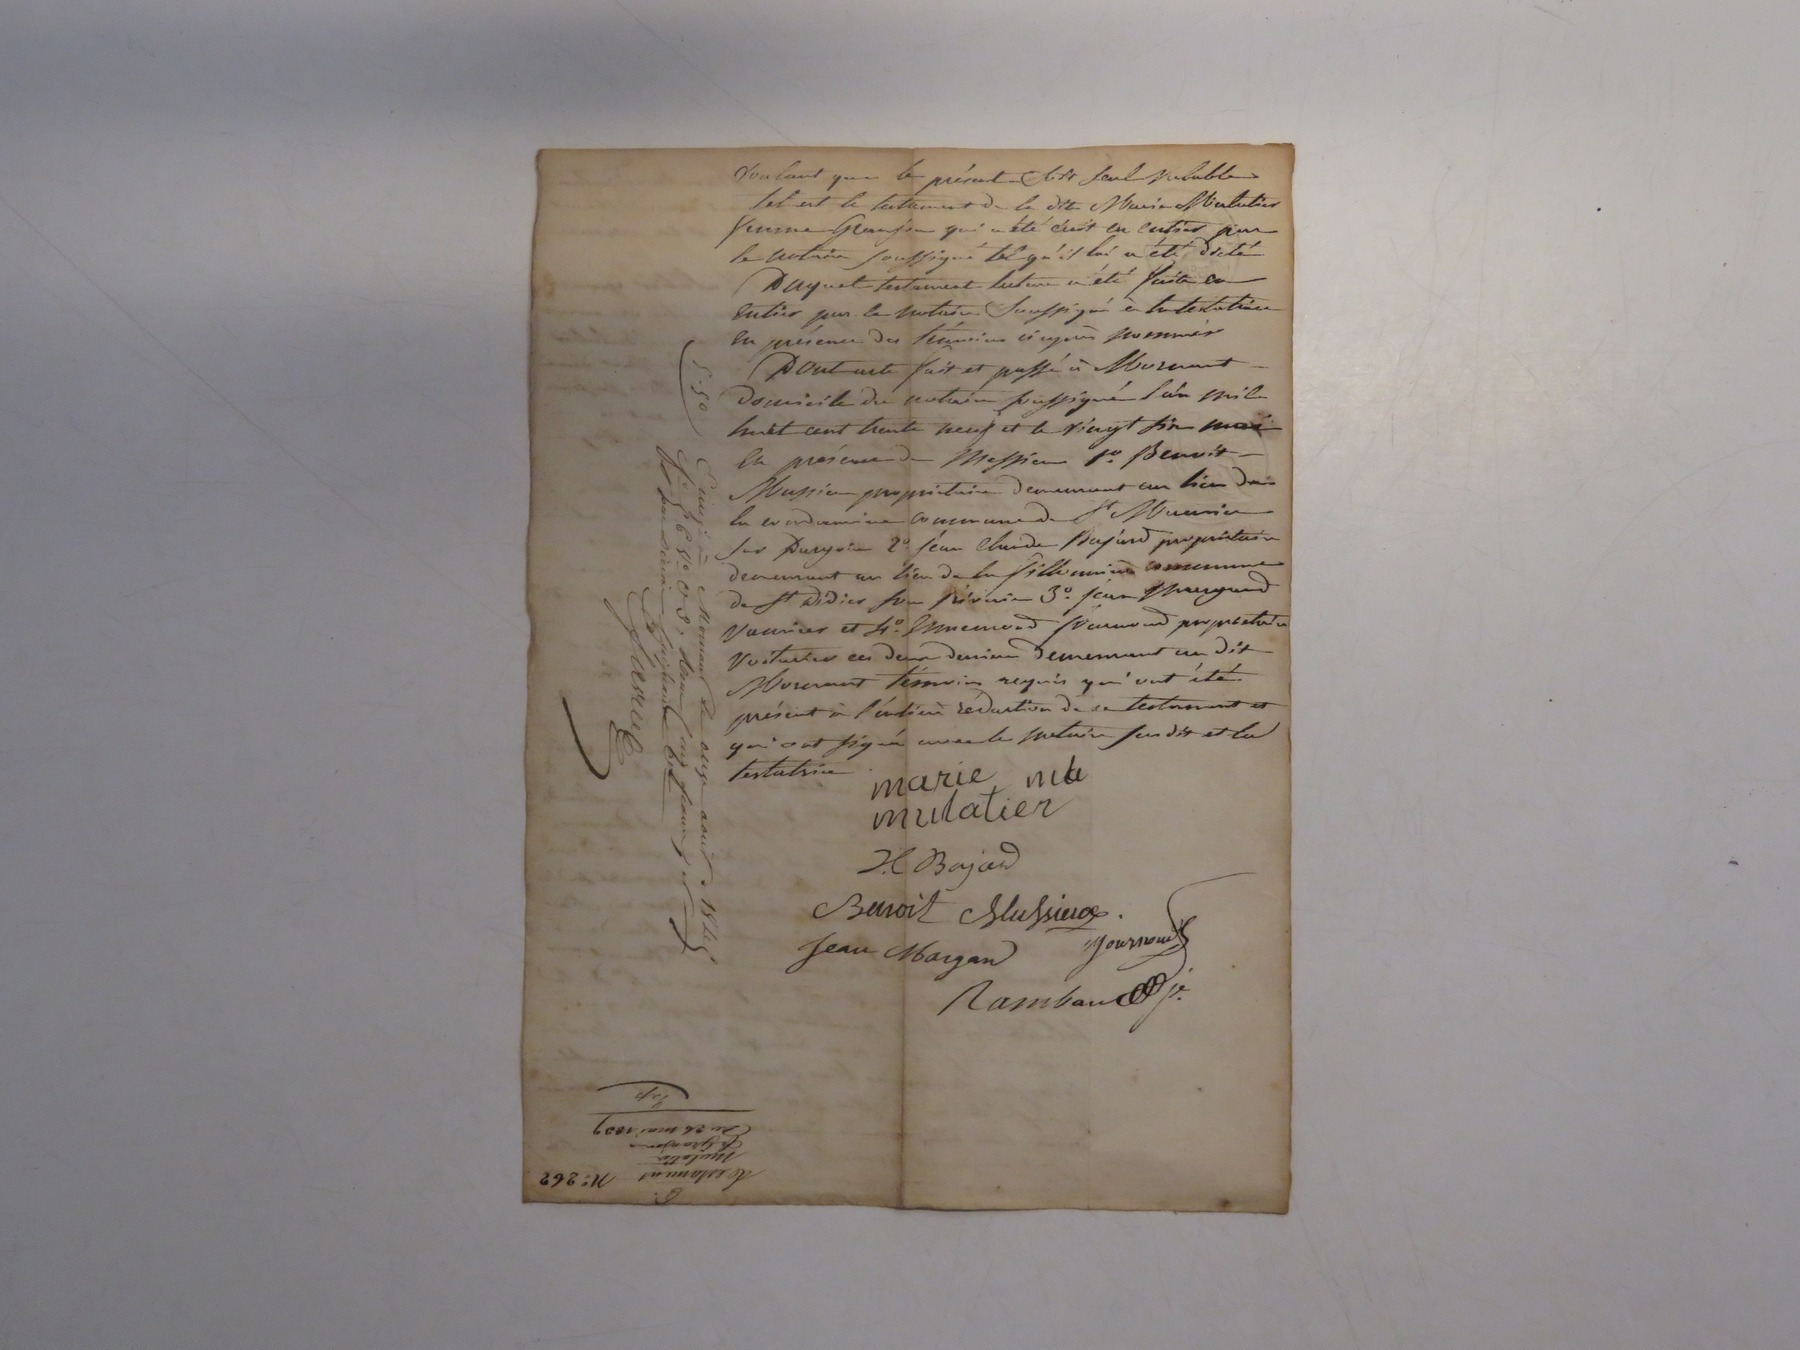 voulant que le présent soit seul valable
tel est le testament de la dte Marie Mulatier
femme Granjon qui a été écrit en entier par
le notaire soussigné tel qu'il lui a été dicté
Duquel testament lecture a été faite en
entier par le notaire soussigné à la testatrice
en présence des témoins ci après nommés
Dont acte fait et passé à Mornant
domicile du notaire soussigné l'an mil
huit cent trente neuf et le vingt six mai
en présence de Messieurs 1o Benoit
Mussieux propriétaire demeurant au lieu de
la commune de St Maurice
sur Dargoire 2o Jean Claude Bajard propriétaire
demeurant au lieu de la commune
de St Didier sous Riverie 3o Jean Margand
vannier et 4o Ennemond Journoud propriétaire
voiturier ces deux derniers demeurant au dit
Mornant témoins requis qui ont été
présent à l'entière rédaction de ce testament et
qui ont signé avec le notaire susdit et la
testatrice
marie mu
mulatier
J.C Bajard
Benoit Mussieux
Jean Margand
Journoud
Rambaud
5.50
Enregistré à Mornant le onze août 1845
Testament
Mulatier
fe Granjon
du 26 mai 1839
No 262